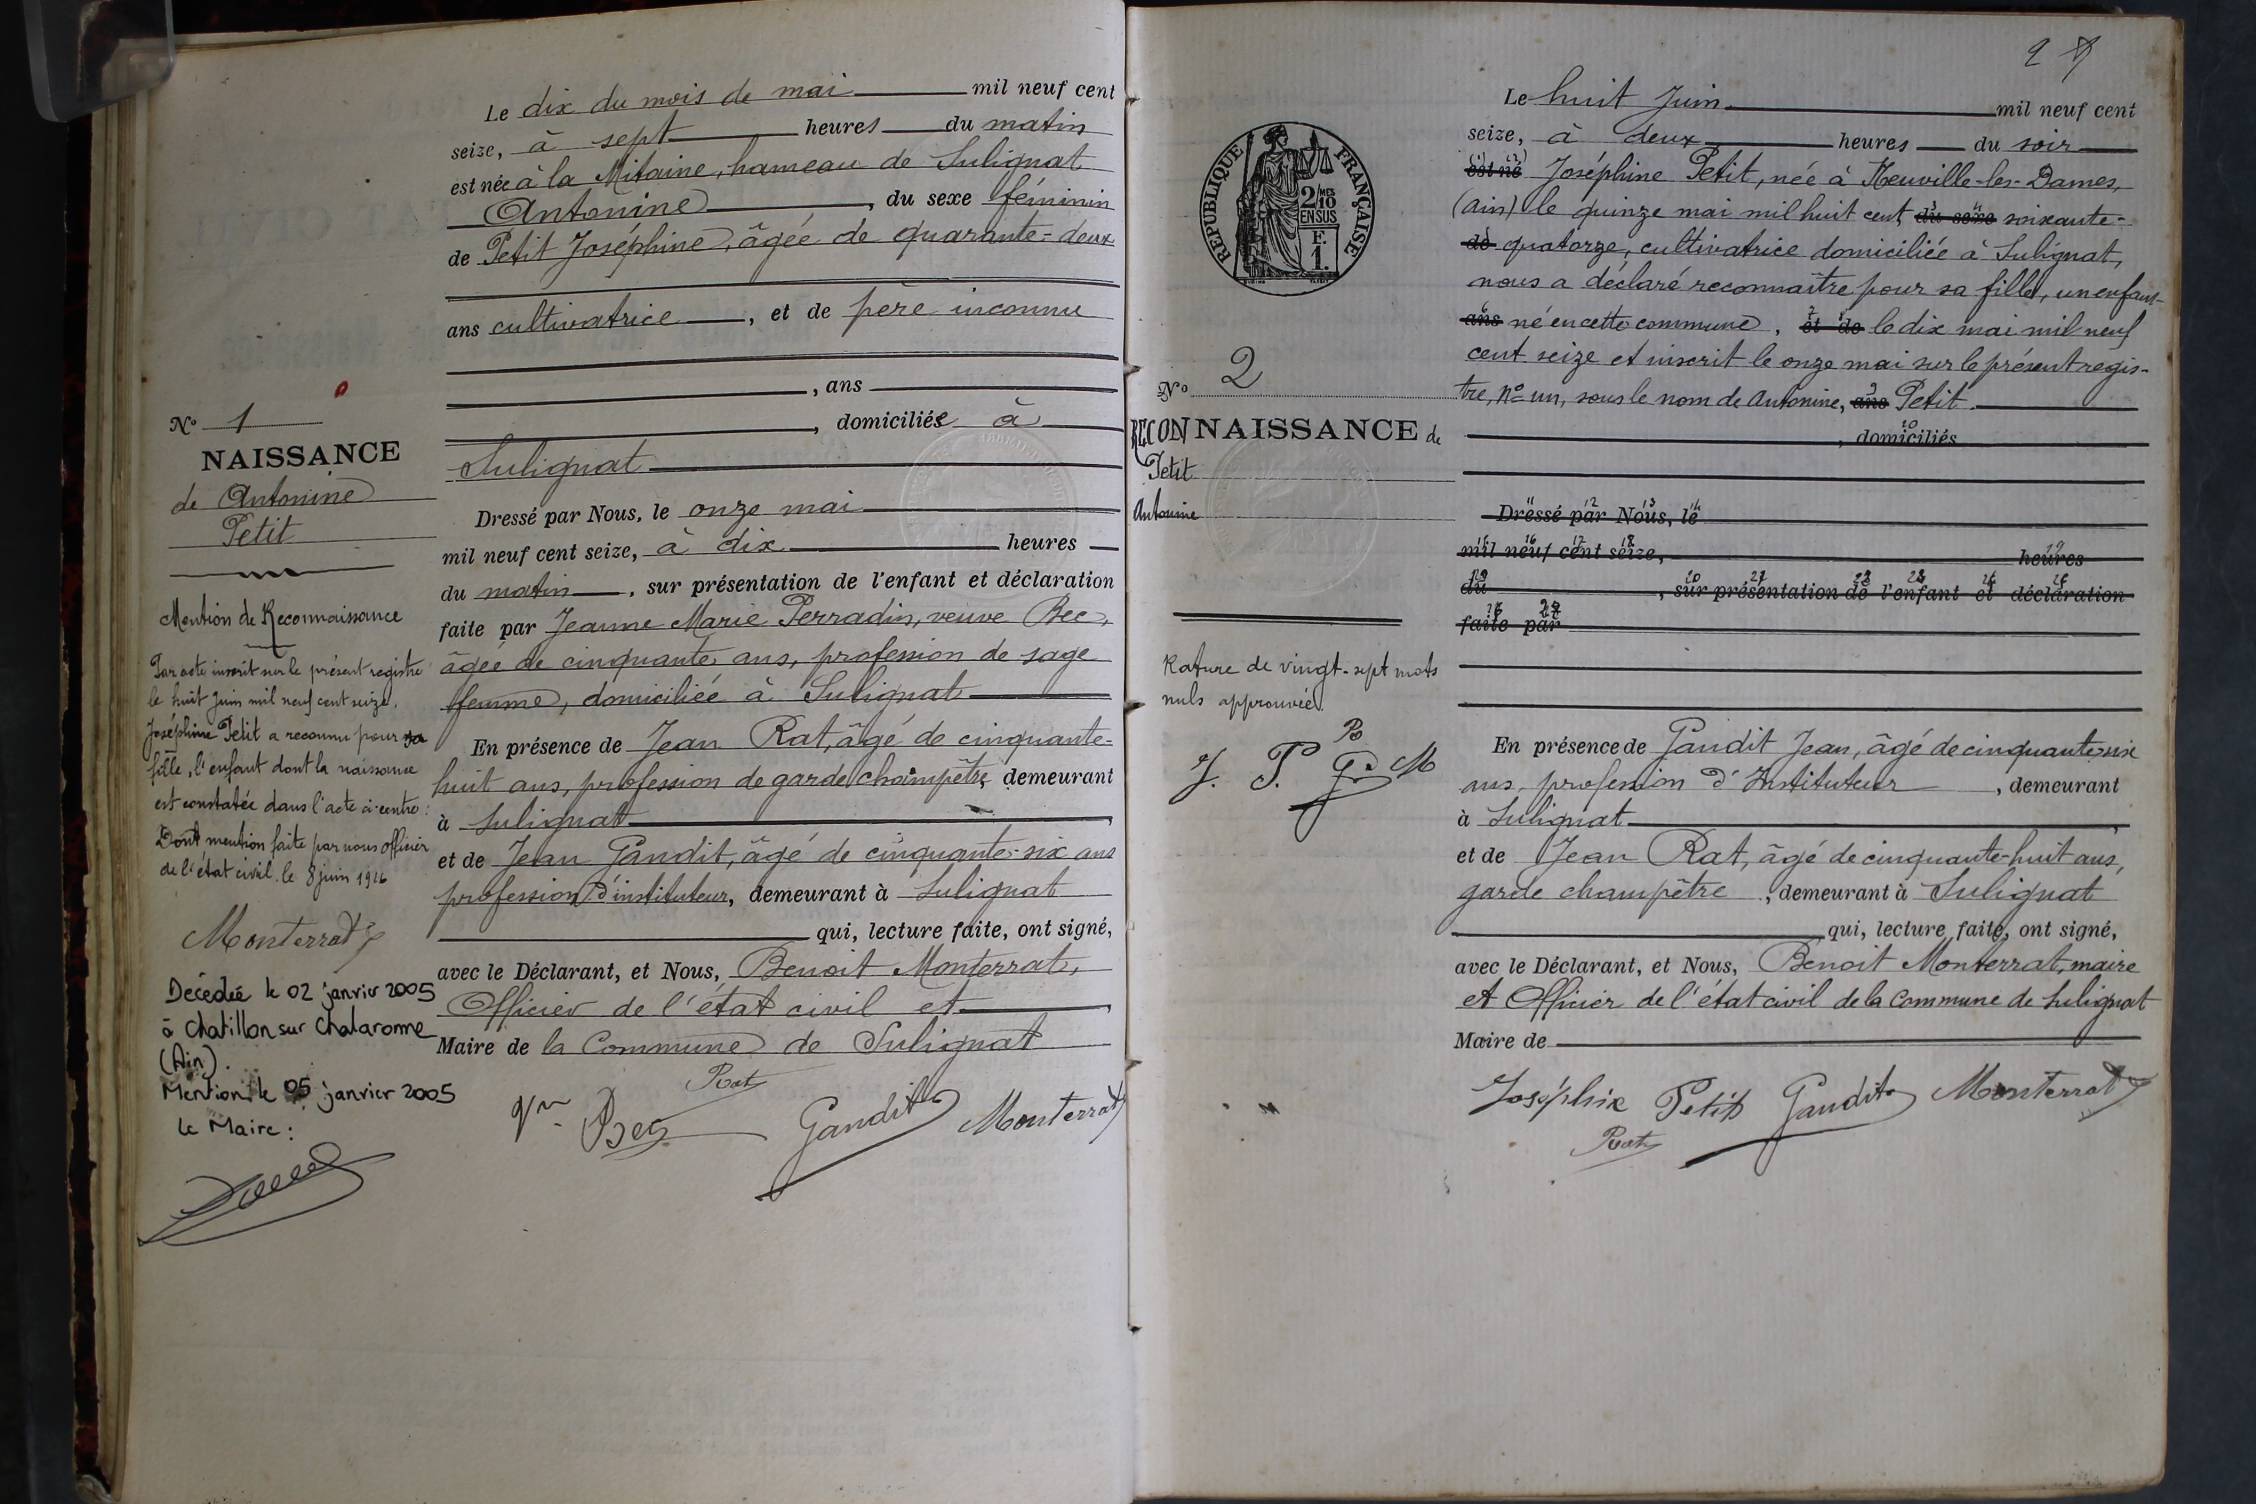 Le dix du mois de mai mil neuf cent
seize, à sept heures du matin
est née à la Mitaine, hameau de Sulignat
Antonine, du sexe féminin
de Petit Joséphine, âgée de quarante-deux
ans cultivatrice, et de père inconnu
, ans
, domiciliée à
Sulignat
Dressé par Nous, le onze mai
mil neuf cent seize, à dix heures
du matin, sur présentation de l'enfant et déclaration
faite par Jeanne Marie Perradin, veuve Bec,
âgée de cinquante ans, profession de sage
femme, domiciliée à Sulignat
En présence de Jean Rat, âgé de cinquante-
huit ans, profession de garde champêtre, demeurant
à Sulignat
et de Jean Gandit, âgé de cinquante-six ans
profession d'instituteur, demeurant à Sulignat
qui, lecture faite, ont signé,
avec le Déclarant, et Nous, Benoit Monterrat,
Officier de l'état civil et
Maire de la Commune de Sulignat
Rat
Vve Bec Gandit Monterrat
No 1
NAISSANCE
de Antonine
Petit
Mention de Reconnaissance
Par acte inscrit sur le présent registre
le huit Juin mil neuf cent seize,
Joséphine Petit a reconnu pour sa
fille, l'enfant dont la naissance
est constatée dans l'acte ci-contre.
Dont mention faite par nous officier
de l'état civil le 8 juin 1916
Monterrat
Décédée le 02 janvier 2005
à Chatillon sur Chalaronne
(Ain).
Mention le 05 janvier 2005
Le Maire :
2
Le huit Juin mil neuf cent
seize, à deux heures du soir
est né Joséphine Petit, née à Neuville-les-Dames,
(Ain) le quinze mai mil huit cent du sexe soixante-
de quatorze, cultivatrice domiciliée à Sulignat,
nous a déclaré reconnaître pour sa fille, un enfant
ans né en cette commune, et de le dix mai mil neuf
cent seize et inscrit le onze mai sur le présent regis-
tre, No un, sous le nom de Antonine, ans Petit.
, domiciliés
Dressé par Nous, le
mil neuf cent seize, heures
du , sur présentation de l'enfant et déclaration
faite par
En présence de Gandit Jean, âgé de cinquante-six
ans, profession d'Instituteur, demeurant
à Sulignat
et de Jean Rat, âgé de cinquante-huit ans,
garde champêtre, demeurant à Sulignat
qui, lecture faite, ont signé,
avec le Déclarant, et Nous, Benoit Monterrat, maire
et Officier de l'état civil de la Commune de Sulignat
Maire de
Joséphine Petit Gandit Monterrat
Rat
RÉPUBLIQUE FRANÇAISE
2/10 MES
EN SUS
F.
1.
No 2
RECONNAISSANCE de
Petit
Antonine
Rature de vingt-sept mots
nuls approuvée.
J. P. Gd M